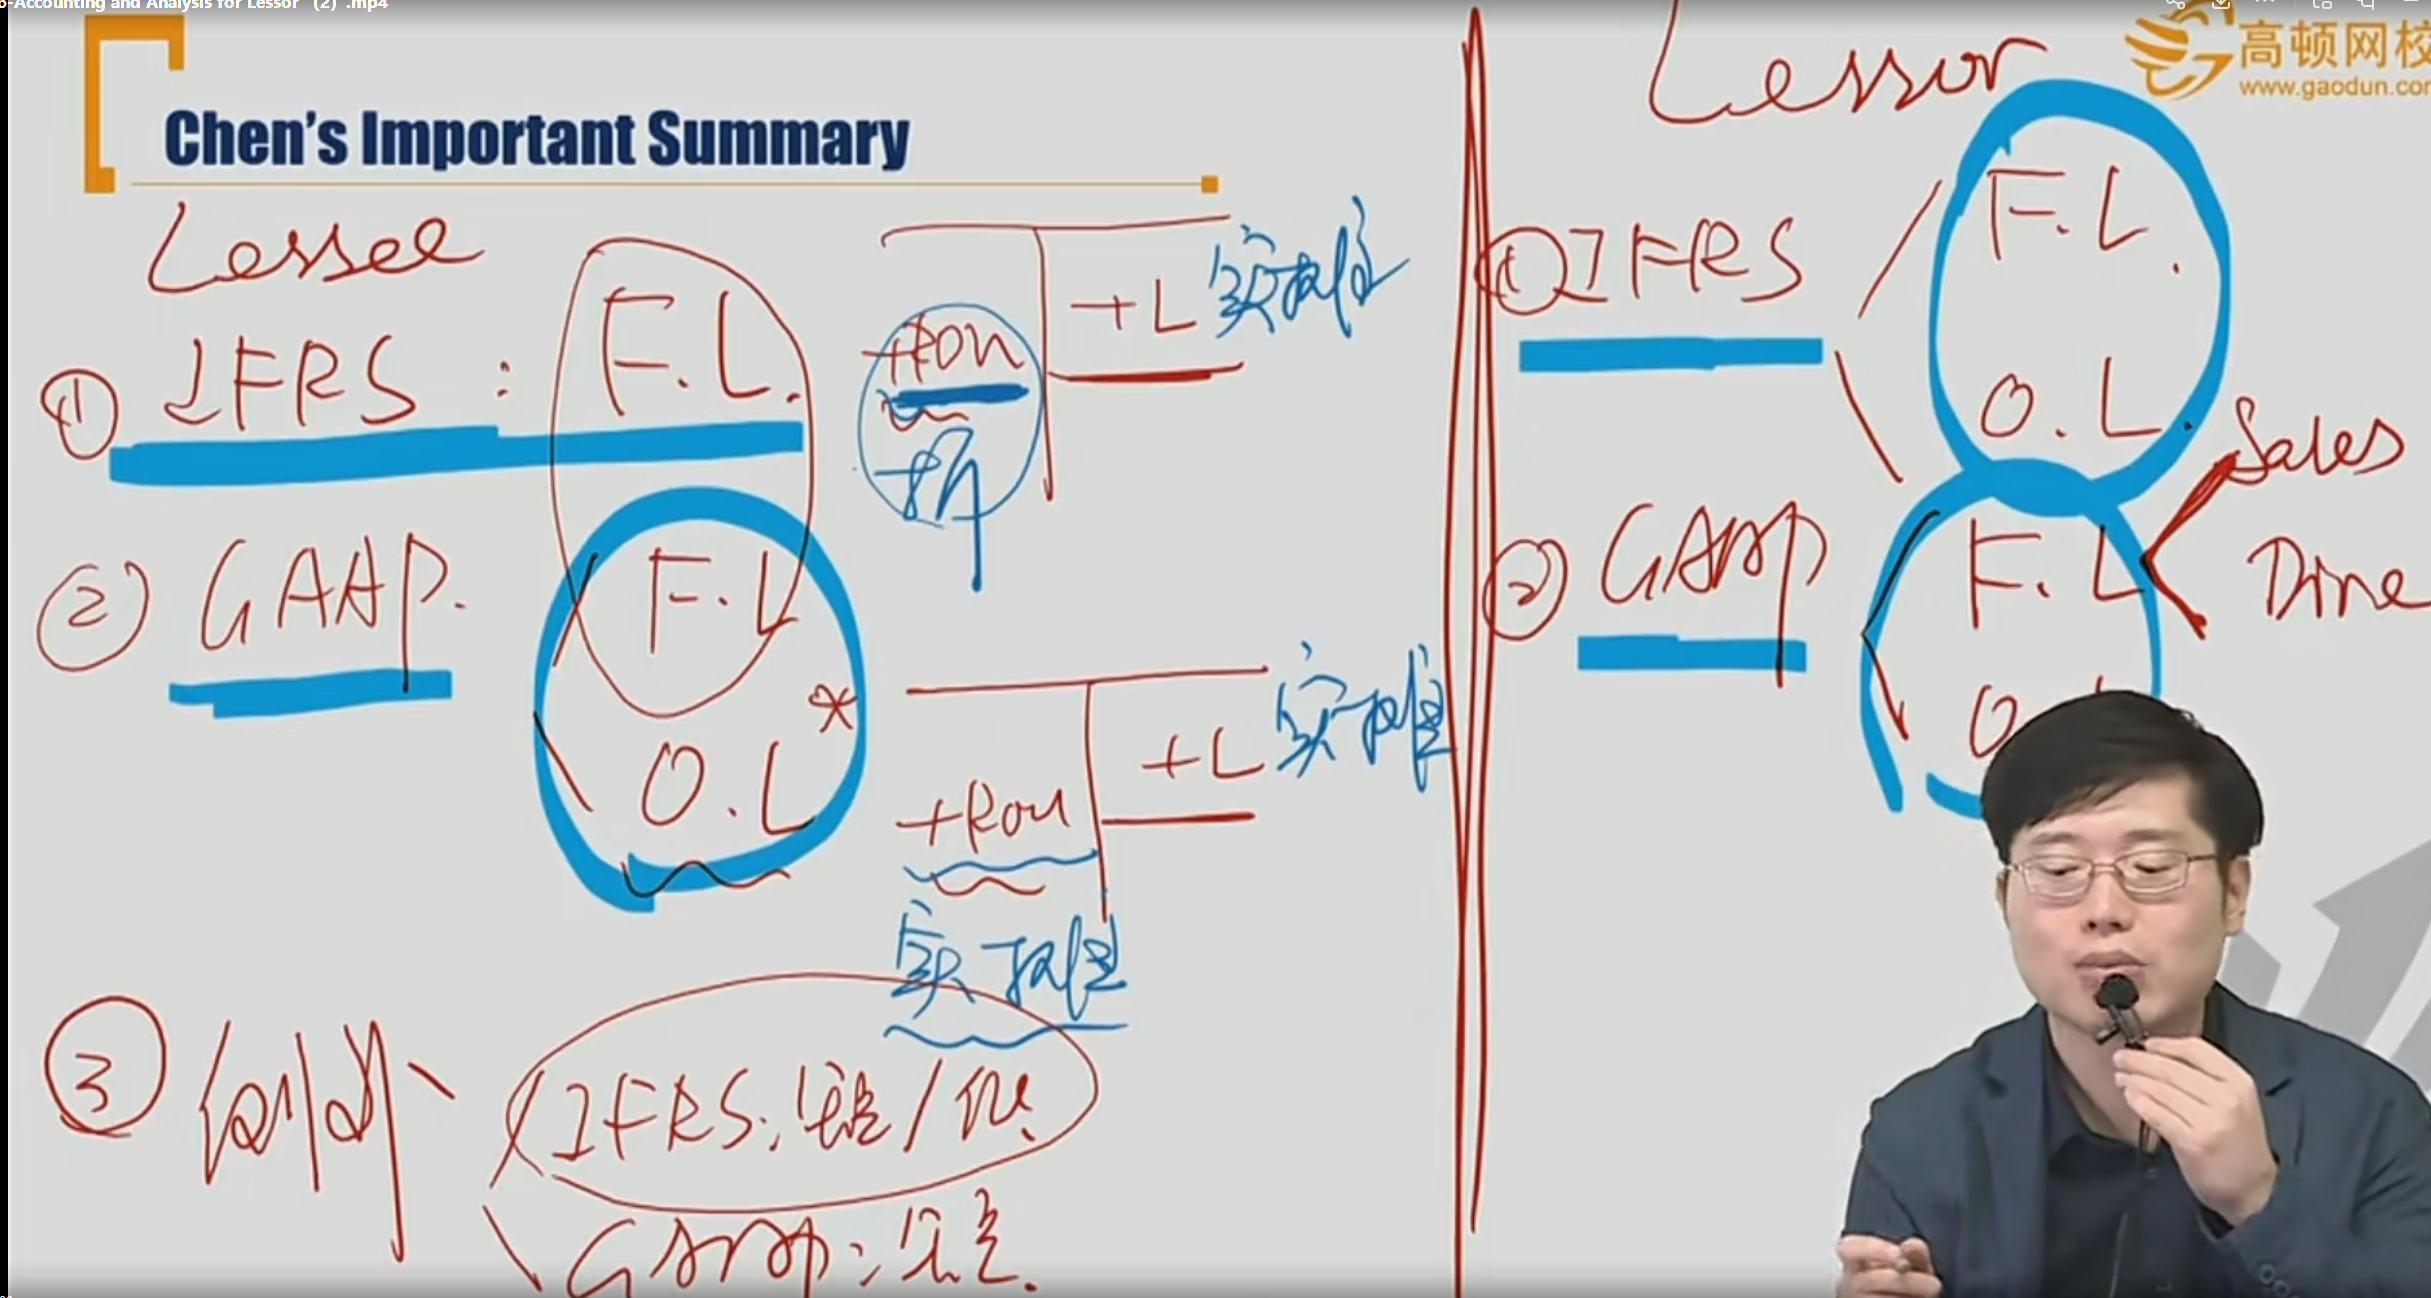 o-Accounting and Analysis for Lessor (2) .mp4
高顿网校
www.gaodun.com
Chen's Important Summary
Lessee
① IFRS : F.L.
+Rou
+L
折
② GAAP.
F.L
O.L *
+Rou
+L
③
IFRS:
GAAP:
Lessor
① IFRS
F.L.
O.L.
② GAAP
F.L
Sales
Dire
O